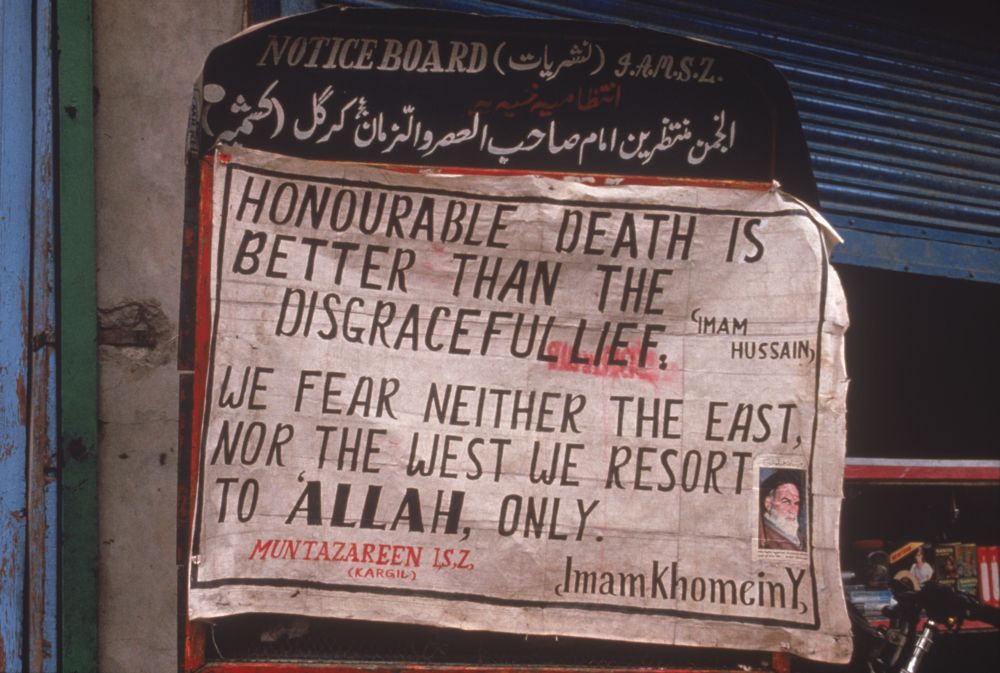 NOTICE BOARD (نشریات) J.A.M.S.Z.
انجمن منتظرین امام صاحب العصر والزمانؑ کرگل (کشمیر)
HONOURABLE DEATH IS
BETTER THAN THE
DISGRACEFUL LIEF.
‘IMAM
HUSSAIN,
WE FEAR NEITHER THE EAST,
NOR THE WEST WE RESORT
TO 'ALLAH, ONLY.
MUNTAZAREEN I,S,Z,
(KARGIL)
Imam KhomeinY,